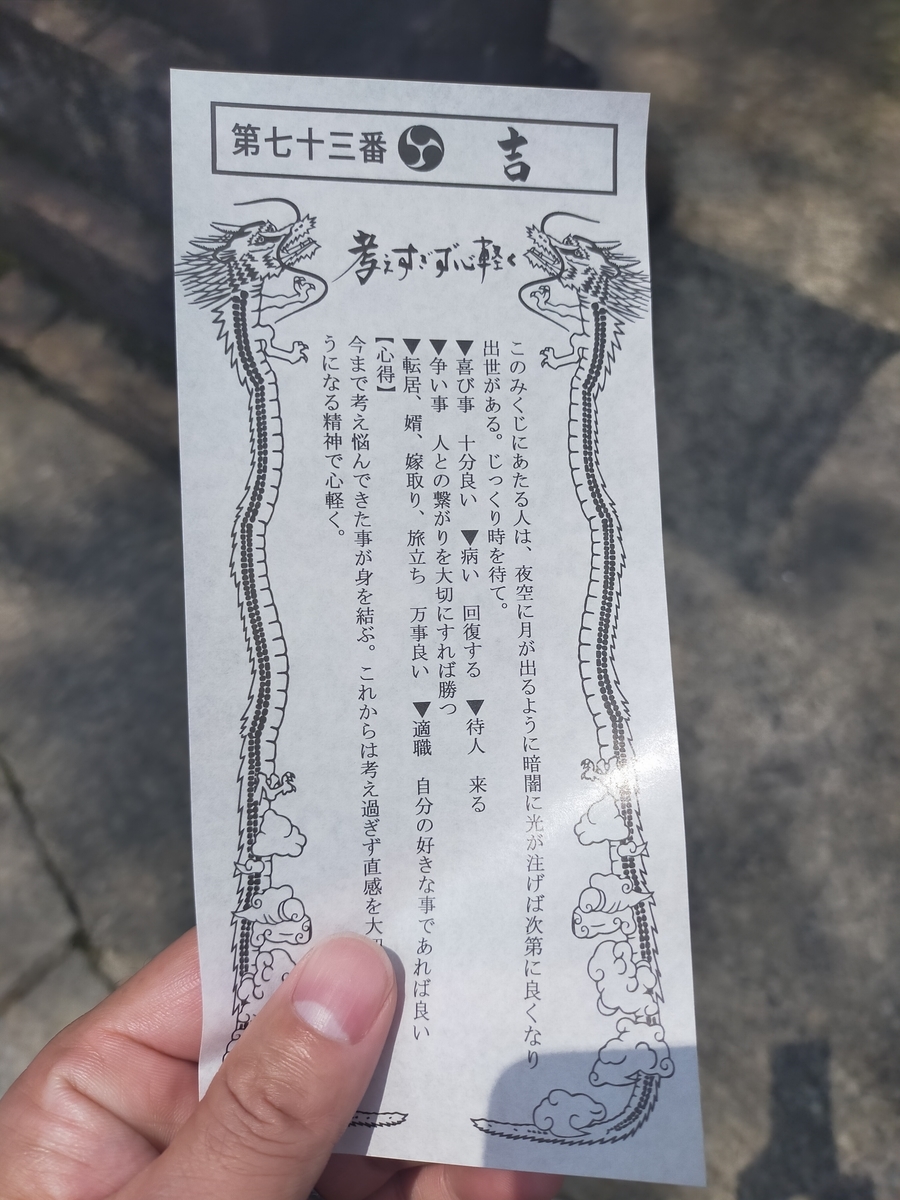 第七十三番 吉
考えすぎず心軽く
このみくじにあたる人は、夜空に月が出るように暗闇に光が注げば次第に良くなり
出世がある。じっくり時を待て。
▼喜び事 十分良い ▼病い 回復する ▼待人 来る
▼争い事 人との繋がりを大切にすれば勝つ
▼転居、婿、嫁取り、旅立ち 万事良い ▼適職 自分の好きな事であれば良い
【心得】
今まで考え悩んできた事が身を結ぶ。これからは考え過ぎず直感を大
うになる精神で心軽く。